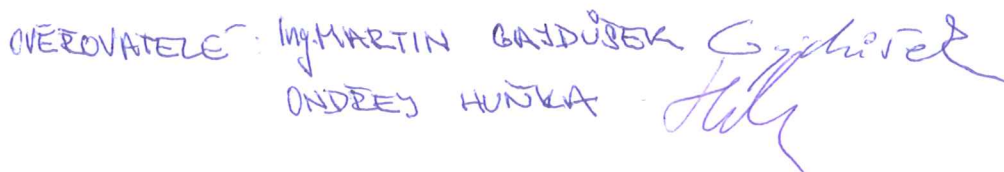 OVĚŘOVATELÉ: Ing. MARTIN GAJDŮŠEK Gajdůšek
ONDŘEJ HUŇKA